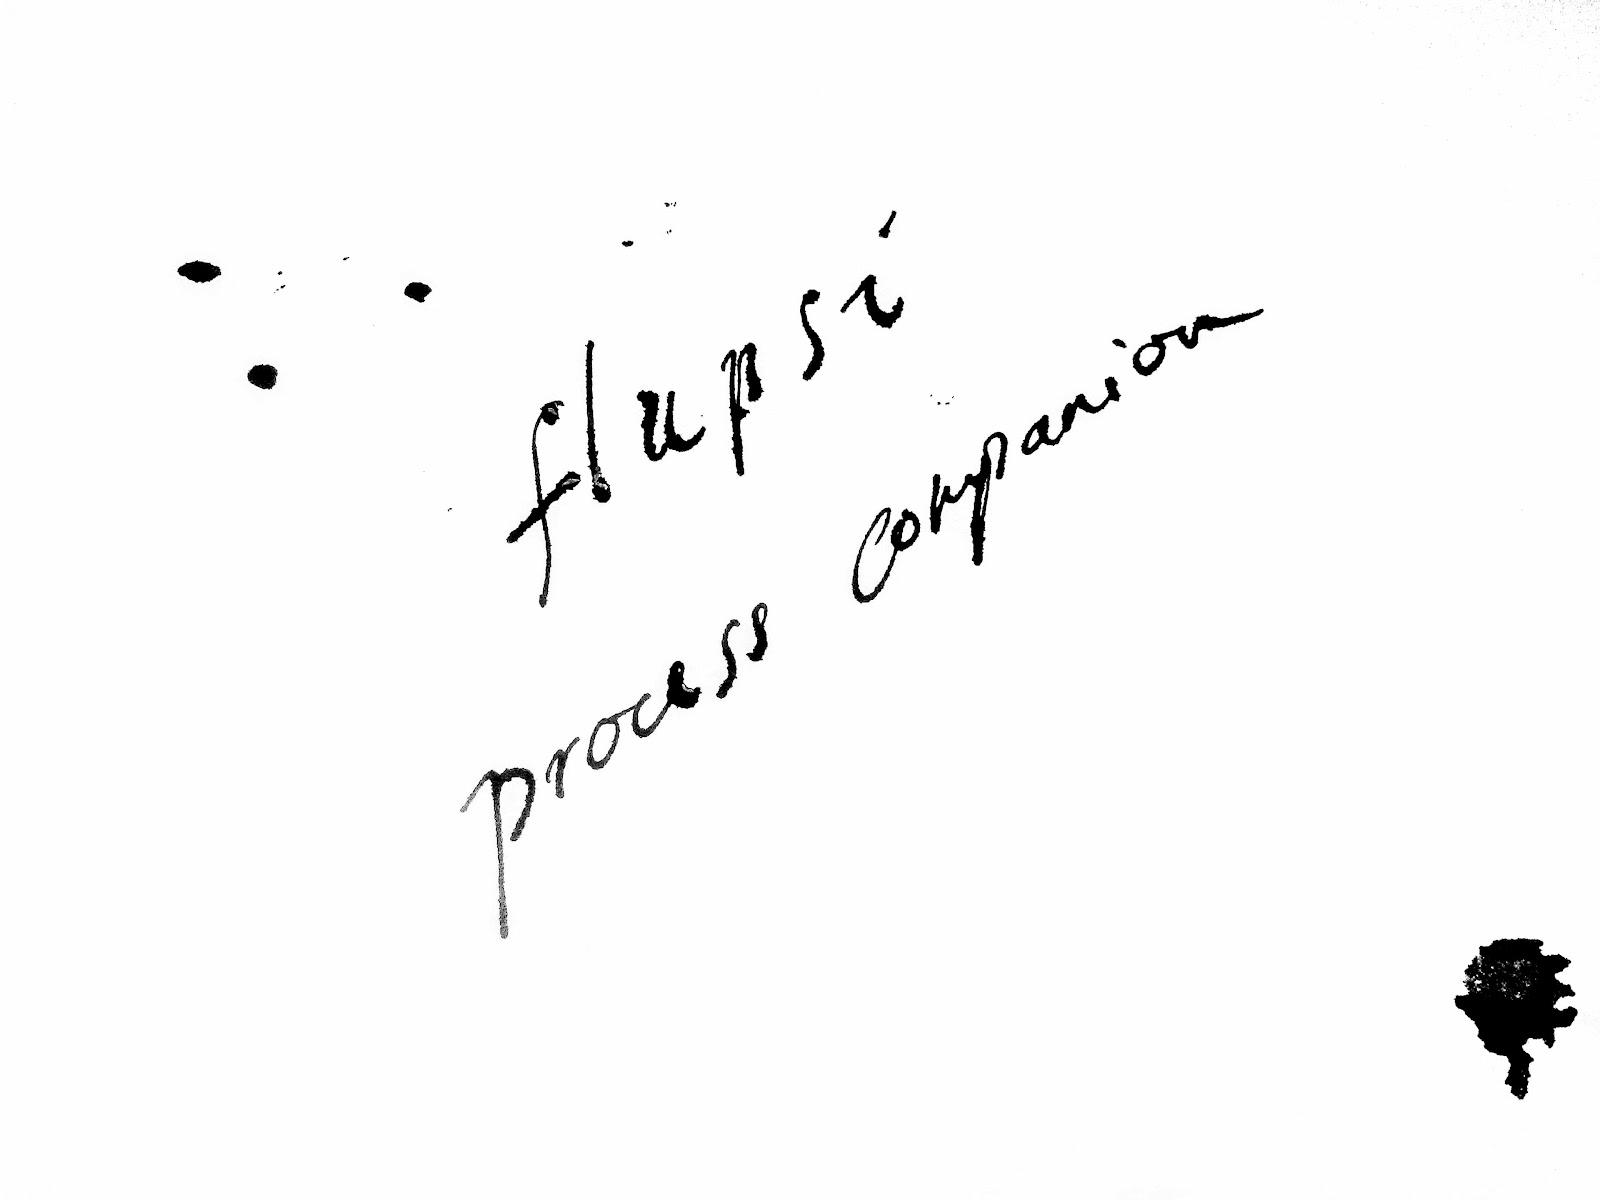 flupsi
process companion